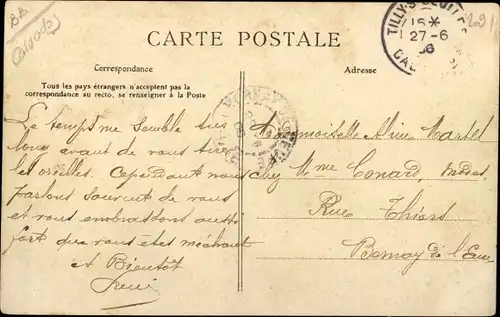 BB
Calvados
CARTE POSTALE
TILLY-S-SEULLES
16*
27-6
06
Correspondance
Adresse
Tous les pays étrangers n'acceptent pas la
correspondance au recto, se renseigner à la Poste
Le temps me semble très
long avant de vous tirer
les oreilles. Cependant nous
parlons souvent de vous
et vous embrassons aussi
fort que vous êtes méchante
et Bientôt
Mademoiselle Aline Martel
chez Mme Conard, Modes,
Rue Thiers
Bernay de l'Eure